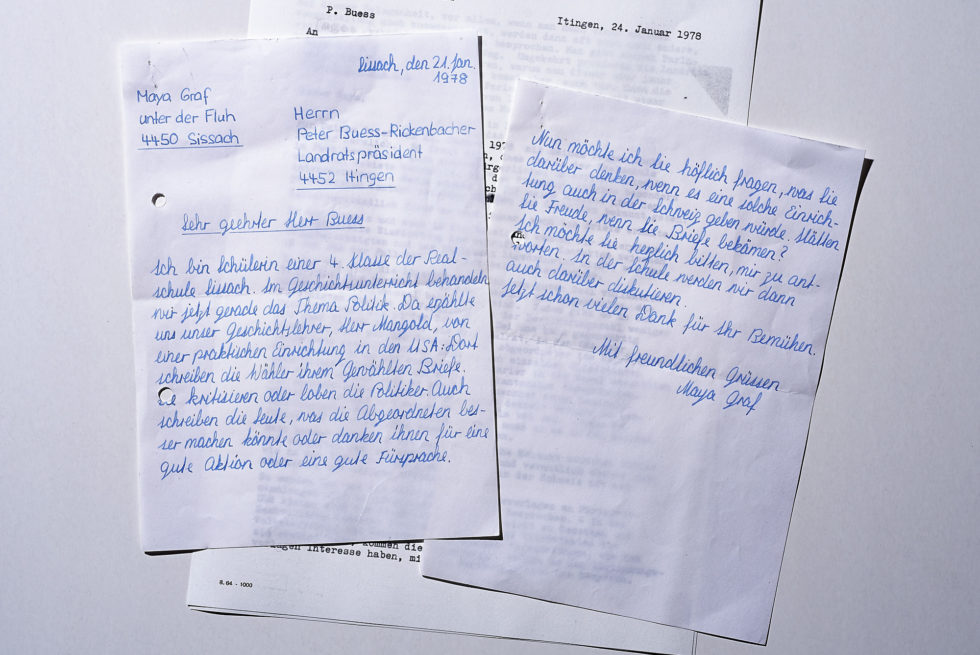 P. Buess
Itingen, 24. Januar 1978
An
Sissach, den 21. Jan.
1978
Maya Graf
unter der Fluh
4450 Sissach
Herrn
Peter Buess-Rickenbacher
Landratspräsident
4452 Itingen
Sehr geehrter Herr Buess
Ich bin Schülerin einer 4. Klasse der Real-
schule Sissach. Im Geschichtsunterricht behandeln
wir jetzt gerade das Thema Politik. Da erzählte
uns unser Geschichtslehrer, Herr Mangold, von
einer praktischen Einrichtung in den USA: Dort
schreiben die Wähler ihrem Gewählten Briefe.
Sie kritisieren oder loben die Politiker. Auch
schreiben die Leute, was die Abgeordneten bes-
ser machen könnte oder danken ihnen für eine
gute Aktion oder eine gute Fürsprache.
Nun möchte ich Sie höflich fragen, was Sie
darüber denken, wenn es eine solche Einrich-
tung auch in der Schweiz geben würde. Hätten
Sie Freude, wenn Sie Briefe bekämen?
Ich möchte Sie herzlich bitten, mir zu ant-
worten. In der Schule werden wir dann
auch darüber diskutieren.
Jetzt schon vielen Dank für Ihr Bemühen.
Mit freundlichen Grüssen
Maya Graf
kommen die
Interesse haben, mi
8.64 - 1000